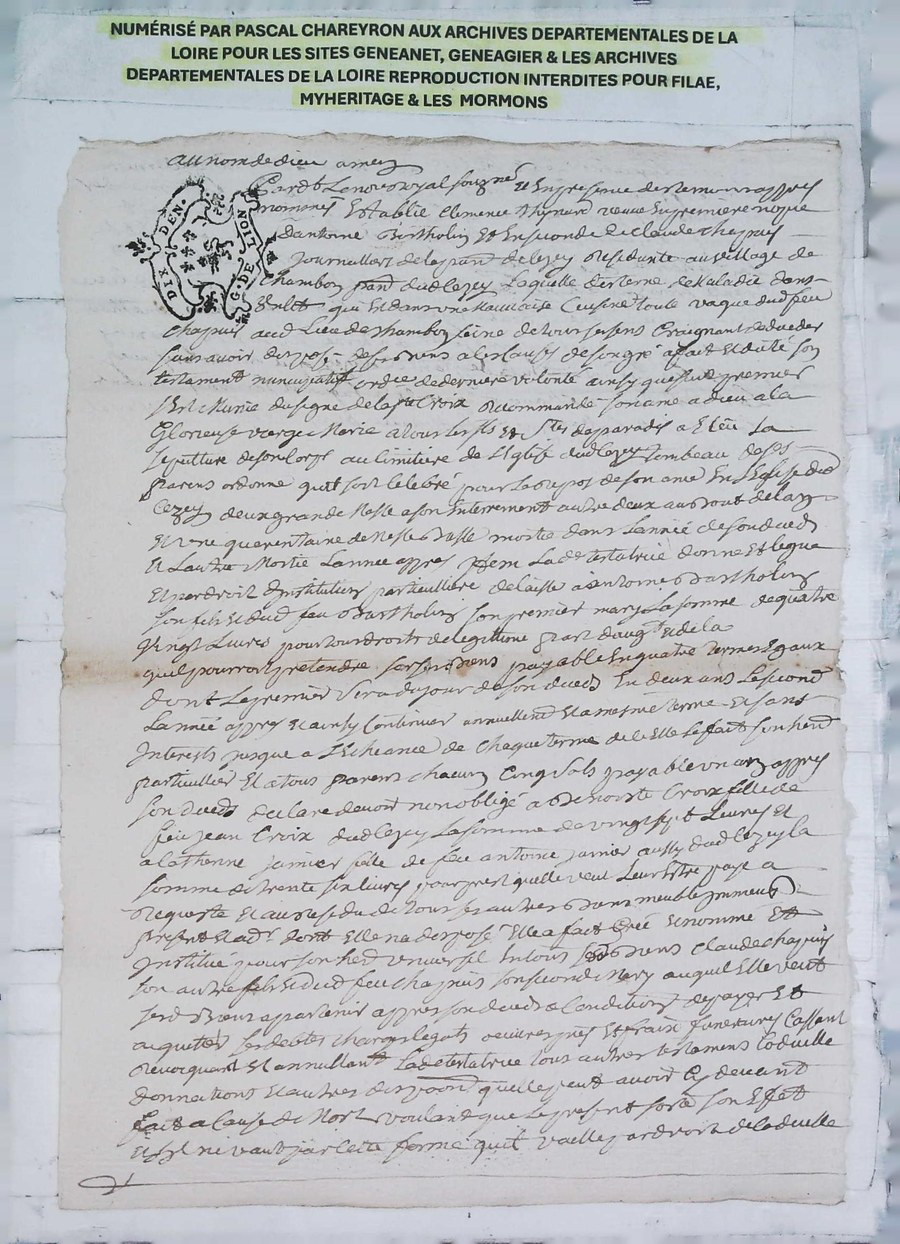 NUMÉRISÉ PAR PASCAL CHAREYRON AUX ARCHIVES DEPARTEMENTALES DE LA
LOIRE POUR LES SITES GENEANET, GENEAGIER & LES ARCHIVES
DEPARTEMENTALES DE LA LOIRE REPRODUCTION INTERDITES POUR FILAE,
MYHERITAGE & LES MORMONS
au nom de dieu amen
Pard^t Le no^re Royal sousigné et En presence des temoins appres
nommés Establie Clemence thynard veuve En premiere nopce
D'antoine Barthollin Et En seconde de Claude Chapuis
DIX DEN.
G. DE
journallier de la par^sse de Cezey Residante au village de
Chambon par^sse dud Cezey Laquelle de maladie dans
un lit qui Est dans une Cuisine dud feu
Chapuis aud Lieu de Chambon saine de tous ses sens Craignant de deceder
sans avoir disposé de ses biens a ces Causes de son gré a fait Et dicté son
testament nuncupatif ordre de derniere volonté ainsy que suit premier
s'Est Munie du signe de la s^te Croix Recommandé son ame a dieu a la
Glorieuse vierge Marie a tous les s^ts Et s^tes de paradis a Eleu sa
sepulture de son Corps au Cimitiere de L'Eglise dud Cezey tombeau de ses
parens ordonne qu'il soit Celebré pour Le Repos de son ame En L'Eglise dud
Cezey deux grande Messe a son Enterrement autre deux au bout de L'an
Et une quarentaine de Messe basse moitié dans L'année de son deceds
Et L'autre Moitié L'année appres Item Lad^e testatrice donne Et legue
Et par droit d'institution particulliere delaisse a antoine Barthollin
son fils Et dud feu Barthollin son premier mary La somme de quatre
vingt Livres pour tous droits de legittime part d'augt et de la
qu'il pourroit pretendre sur ses biens payable En quatre termes Egaux
dont Le premier sera du jour de son deceds En deux ans Le second
L'année appres Et ainsy Continuer annuellem^t Et a mesme terme Et sans
Interests jusque a L'Echeance de Chaque terme de ce Elle Le fait son herit
particullier Et a tous parens chacun Cinq sols payable un an appres
son deceds declare devoir non obligé a Benoiste Croix fille de
feu jean Croix dud Cezey La somme de vingt sept Livres Et
a Catherine janvier fille de feu antoine janvier aussy dud Cezey la
somme de trente six livres pour prest qu'elle veut Leur Estre payé a
Requeste Et au Residu de tous ses autres biens meuble immeuble
present Et ad^r dont Elle n'a disposé Elle a fait Créé Et nommé Et
Institué pour son her^r universel En tous ses biens Claude Chapuis
son autre fils Et dud feu Chapuis son second Mary auquel Elle veut
sesd biens appartenir appres son deceds a Condition de payer Et
aquiter les debtes charges legats oeuvres pies Et fraix funeraires Cassant
Revocquant Et annullant Lad^e testatrice tous autres testamens Codicille
donnations Et autres disposons qu'elle peut avoir Cy devant
fait a Cause de Mort voulant que Le present sorte son Effet
Et s'il ne vaut par Cette forme qu'il vaille par droit de Codicille